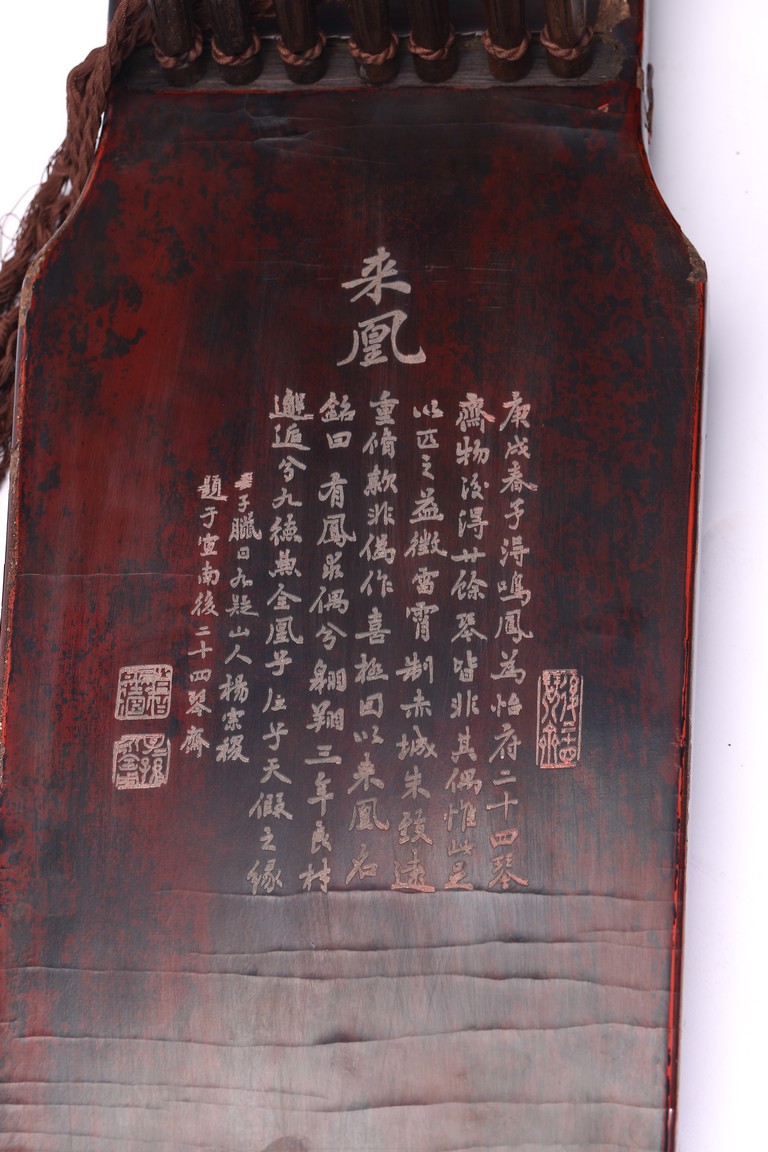 来凰
庚戌春予得鳴鳳為怡府二十四琴
齋物後得廿餘琴皆非其偶惟此足
以匹之益徵雷霄制赤城朱致遠
重脩款非偽作喜極因以来凰名
銘曰有鳳求偶兮翱翔三年良材
邂逅兮九德兼全凰乎凰乎天假之緣
子臘日九疑山人楊宗稷
題于宣南後二十四琴齋